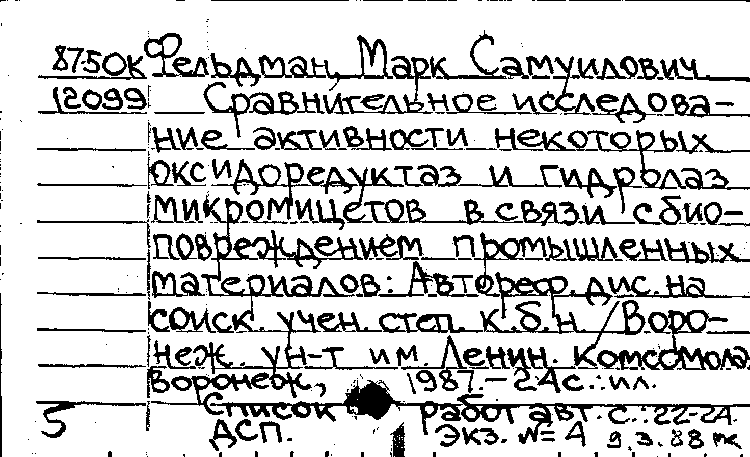 87-50К Фельдман, Марк Самуилович
12099 Сравнительное исследова-
ние активности некоторых
оксидоредуктаз и гидролаз
микромицетов в связи с био-
повреждением промышленных
материалов: Автореф. дис. на
соиск. учен. степ. к.б.н / Воро-
неж. ун-т им. Ленин. комсомола
Воронеж, 1987.-24с.:ил.
Список работ авт. с.:22-24.
5 ДСП. Экз. №= 4 9.3.88